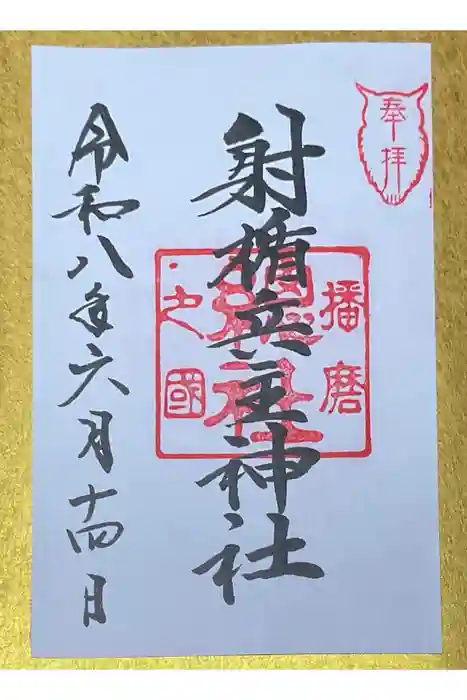 奉拝
射楯兵主神社
播磨
総社
之國
令和八年六月十四日